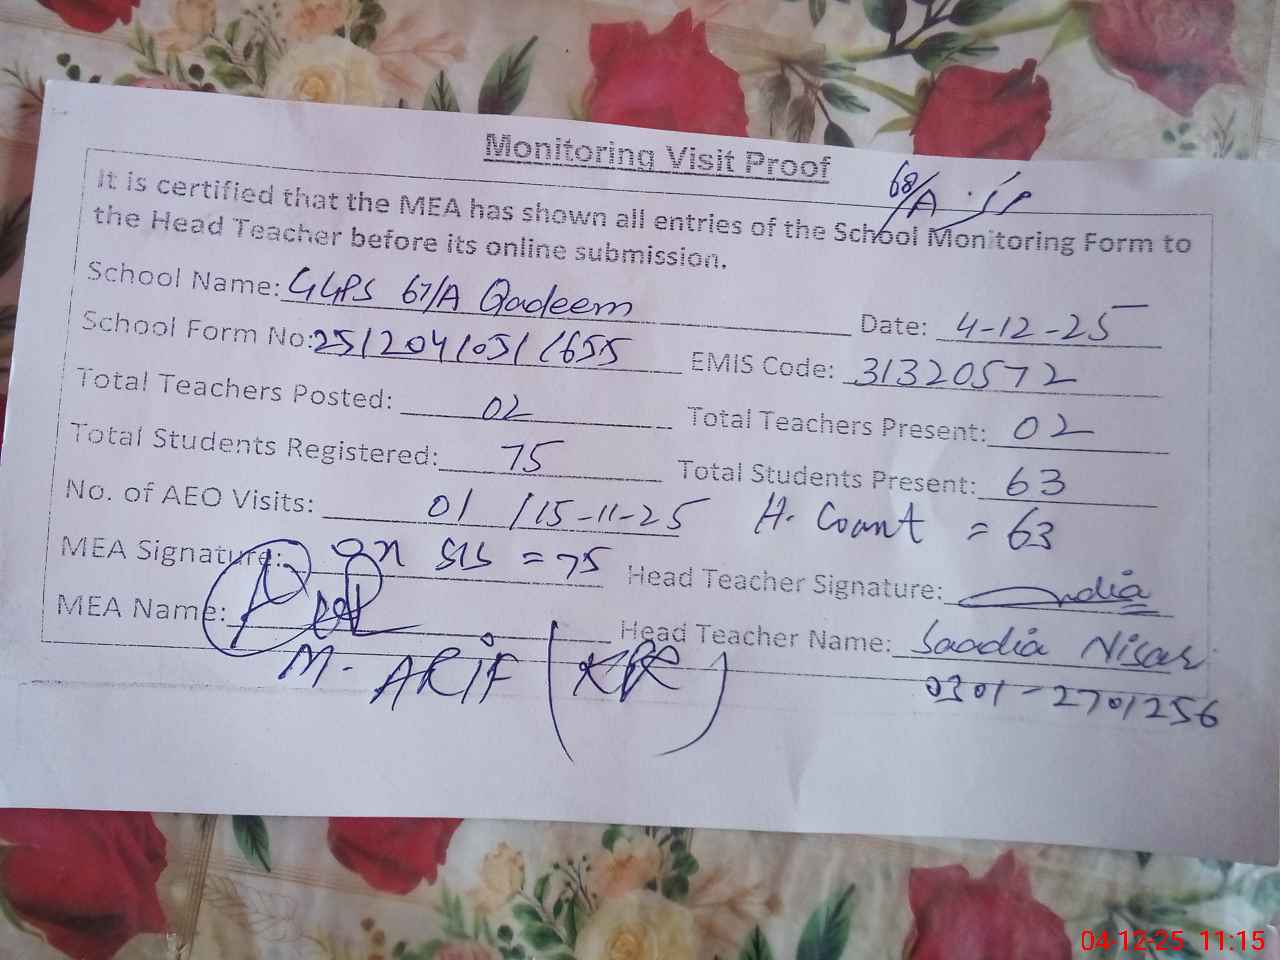 Monitoring Visit Proof
68/A
It is certified that the MEA has shown all entries of the School Monitoring Form to
the Head Teacher before its online submission.
School Name: GGPS 67/A Qadeem Date: 4-12-25
School Form No: 251204105 1655 EMIS Code: 31320572
Total Teachers Posted: 02 Total Teachers Present: 02
Total Students Registered: 75 Total Students Present: 63
No. of AEO Visits: 01 / 15-11-25 H. Count = 63
MEA Signature: on SIS = 75 Head Teacher Signature:
MEA Name: Head Teacher Name: Saadia Nisar
M. ARIF 0301-2701256
04-12-25 11:15